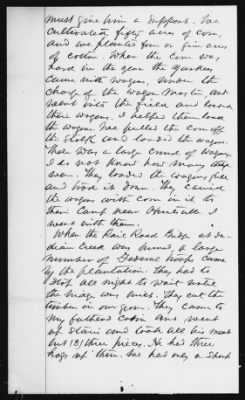 must give him a support. We
cultivated fifty acres of corn,
and we planted four or five acres
of cotton. When the corn was
hard in the ear the Yankees
came with wagons, under the
charge of the wagon master and
went into the field and loaded
their wagons. I helped them load
the wagons. We pulled the corn off
the stalk and loaded the wagons.
There was a large crowd of wagons,
I do not know how many they
were. They loaded the wagons full
and hauled it down. They carried
the wagons with corn in it to
their camp near Huntsville. I
went with them.
When the Rail Road Bridge at In-
dian Creek was burned, a large
number of Federal troops came
by the plantation. They had to
stop all night to wait until
the bridge was built. They cut the
timber in our grove. They came to
my father's cabin and went
up stairs and took all his meat
but (3) three pieces. He had three
hogs up there. We had only a short